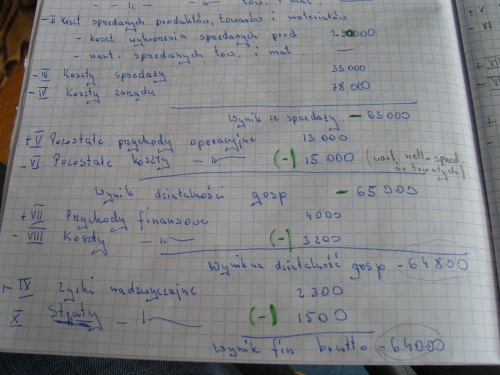 - II Koszt sprzedanych produktów, towarów i materiałów
- koszt wytworzenia sprzedanych prod 290000
- wart. sprzedanych tow. i mat —
- III Koszty sprzedaży 35000
- IV Koszty zarządu 78000
Wynik ze sprzedaży - 63000
+ V Pozostałe przychody operacyjne 13000
- VI Pozostałe koszty -"- (-) 15000 (wart. netto sprzed. śr. trwałych)
Wynik działalności gosp - 65000
+ VII Przychody finansowe 4000
- VIII Koszty -"- (-) 3200
Wynik na działalność gosp - 64800
+ IX Zyski nadzwyczajne 2300
X Straty -"- (-) 1500
Wynik fin brutto - 64000